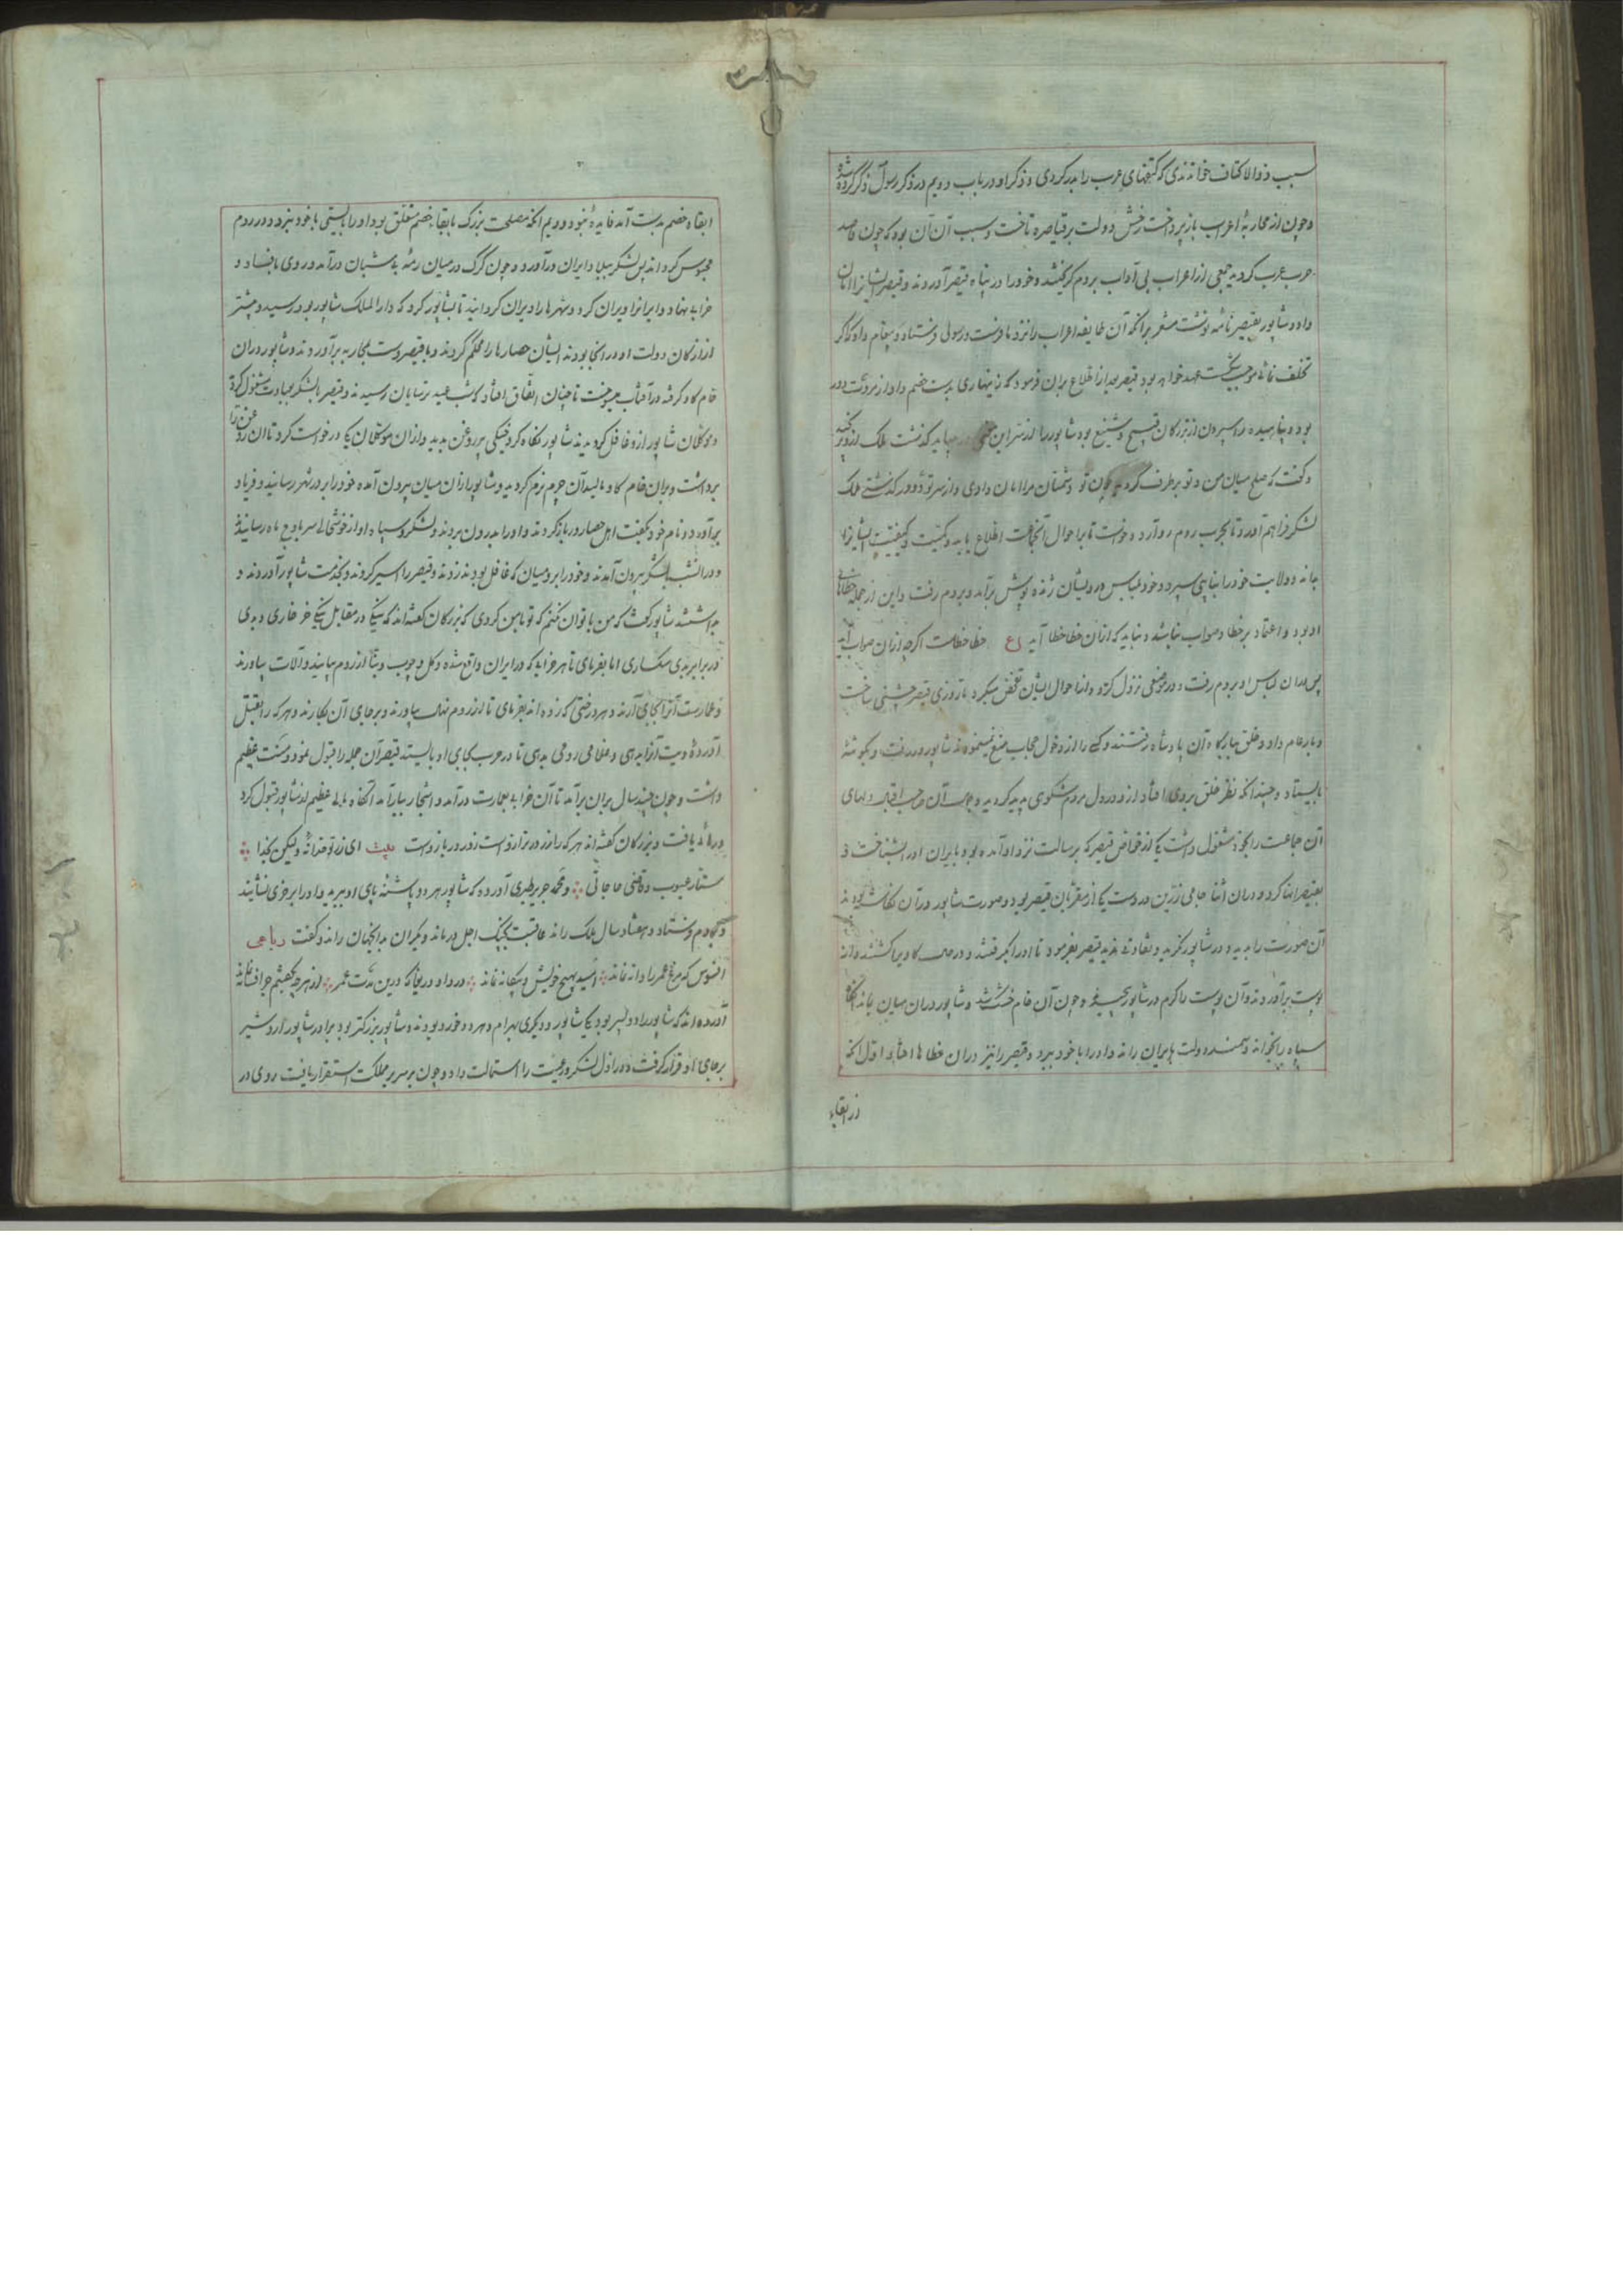 سبب ذوالاکتاف خواندندی که کتفهای عرب را بدر کردی و ذکر او در باب دویم در ذکر رسول ذکر کرده شد
و چون از محاربهٔ اعراب باز پرداخت رخش دولت بر قیاصره تاخت و سبب آن آن بود که چون قاصد
حرب عرب کردید جمعی از اعراب بی آداب بروم کریختند و خود را در پناه قیصر آوردند و قیصر ایشانرا امان
داد و شاپور بقیصر نامه نوشت مشعر برانکه آن طایفه اعراب را نزد ما فرست و رسولی فرستاد و پیغام داد که اکر
تخلف نمائی موجب شکست عهد خواهد بود قیصر بعد از اطلاع بران فرمود که زینهاری بدست خصم دادن از مروت دور
بود و پناهیده را سپردن از بزرکان قبیح و شنیع بود شاپور را از سر این می باید کذشت ملک
و کفت که صلح میان من و تو برطرف کردید چون تو دشمنان مرا امان دادی و از سر تودد در کذشتی ملک
لشکر فراهم آورد تا بحرب روم رو آرد و خواست تا بر احوال آنجماعت اطلاع یابد و کمیت و کیفیت ایشانرا
بداند ولایت خود را بنایبی سپرد و خود بلباس درویشان ژنده پوش برآمد و بروم رفت و این از جمله خطاهای
او بود و اعتماد بر خطا و صواب نباشد و نباید که ازان خطا خطا آید ع خطا خطاست اکرچه ازان صواب آید
پس بدان لباس او بروم رفت و در موضعی نزول کرد و از احوال ایشان تفحص میکرد تا روزی قیصر جشنی ساخت
و بار عام داد و خلق ببارکاه آن پادشاه رفتند و کسی را از دخول حجاب منع نمینمودند شاپور در رفت و بکوشهٔ
بایستاد و چندانکه نظر خلق بر وی افتاد ازو در دل مردم شکوهی پدید کردید و جمال آن صاحب اقبال دلهای
آن جماعت را بخود مشغول داشت یکی از خواص قیصر که برسالت نزد او آمده بود بایران او را بشناخت و
بقیصر انها کرد و دران اثنا جامی زرین در دست یکی از مقربان قیصر بود و صورت شاپور در آن نکاشته بودند
آن صورت را بدید و در شاپور نکرید و تفاوتی ندید قیصر بفرمود تا او را بکرفتند و در حال کاویرا کشتند و از
پوست برآوردند و آن پوست را کرم در شاپور پیچیدند و چون آن خام خشک شد و شاپور دران میان بماند آنکاه
سپاه را بخواند و سمند دولت بایران راند و او را با خود ببرد و قیصر را نیز دران خطاها افتاد اول انکه
از ابقاء
ابقاء خصم بدست آمد فایدهٔ نبود و دویم انکه مصلحت بزرک بابقاء خصم متعلق بود او را بایستی با خود نبرد و در روم
محبوس کرداند پس لشکر ببلاد ایران درآورد و چون کرک در میان رمهٔ بی شبان درآمد و روی بافساد و
خرابی نهاد و ایرانرا ویران کرد و شهرها را ویران کردانید تا بنشاپور کرد که دارالملک شاپور بود رسید و بیشتر
از ارکان دولت او در انجا بودند ایشان حصارها را محکم کردند و با قیصر دست محاربه برآوردند و شاپور دران
خام کاو کرفته در آفتاب میسوخت تا چنان اتفاق افتاد که شب عید ترسایان رسید و قیصر با لشکر بعبادت مشغول کردید
و موکلان شاپور ازو غافل کردیدند شاپور نکاه کرد خیکی پر روغن بدید و ازان موکلان یکی درخواست کرد تا ان روغن را
برداشت و بران خام کاو مالید آن چرم نرم کردید و شاپور ازان میان بیرون آمده خود را بر در شهر رسانید و فریاد
برآورد و نام خود بکفت اهل حصار در باز کردند و او را بدرون بردند و لشکر و سپاه او از خوشحالی سر باوج ماه رسانیدند
و در انشب با لشکر بیرون آمدند و خود را بر رومیان که غافل بودند زدند و قیصر را اسیر کردند و بخدمت شاپور آوردند و
بداشتند شاپور کفت که من با تو آن نکنم که تو با من کردی که بزرکان کفته اند که نیکی در مقابل نیکی خرخاری و بدی
در برابر بدی سکساری اما بفرمای تا هر خرابی که در ایران واقع شده و کل و چوب و بنا از روم بیایند و آلات بیاورند
و عمارت آنرا بجای آرند و هر درختی که زده اند بفرمای تا از روم نهال بیاورند و بر جای آن بکارند و هر که را بقتل
آوردهٔ دیت آنرا بدهی و غلامی رومی بدهی تا در حرب بجای او بایستد قیصر آن جمله را قبول نمود و منت عظیم
داشت و چون چند سال بران برآمد تا آن خرابی بعمارت درآمد و اشجار ببار آمد آنکاه مالی عظیم از شاپور قبول کرد
و رهائی یافت و بزرکان کفته اند هر که را زر در ترازوست زور در بازوست بیت ای زر تو خدا نهٔ ولیکن بخدا
ستار عیوب و قاضی حاجاتی و محمد جریر طبری آورده که شاپور هر دو پاشنه پای او ببرید و او را بر خری نشانیده
و بروم فرستاد و هفتاد سال ملک راند عاقبت بچنک اجل درماند و یکران بدانجهان راند و کفت رباعی
افسوس که مرغ عمر را دانه نماند امید بهیچ خویش و بیکانه نماند دردا و دریغا که درین مدت عمر از هر چه بکفتیم جز افسانه نماند
آورده اند که شاپور را دو پسر بود یکی شاپور و دیکری بهرام و هر دو خورد بودند و شاپور بزرکتر بود برادر شاپور اردشیر
بر جای او قرار کرفت و در اول لشکر و رعیت را استمالت داد و چون بر سریر مملکت استقرار یافت روی در